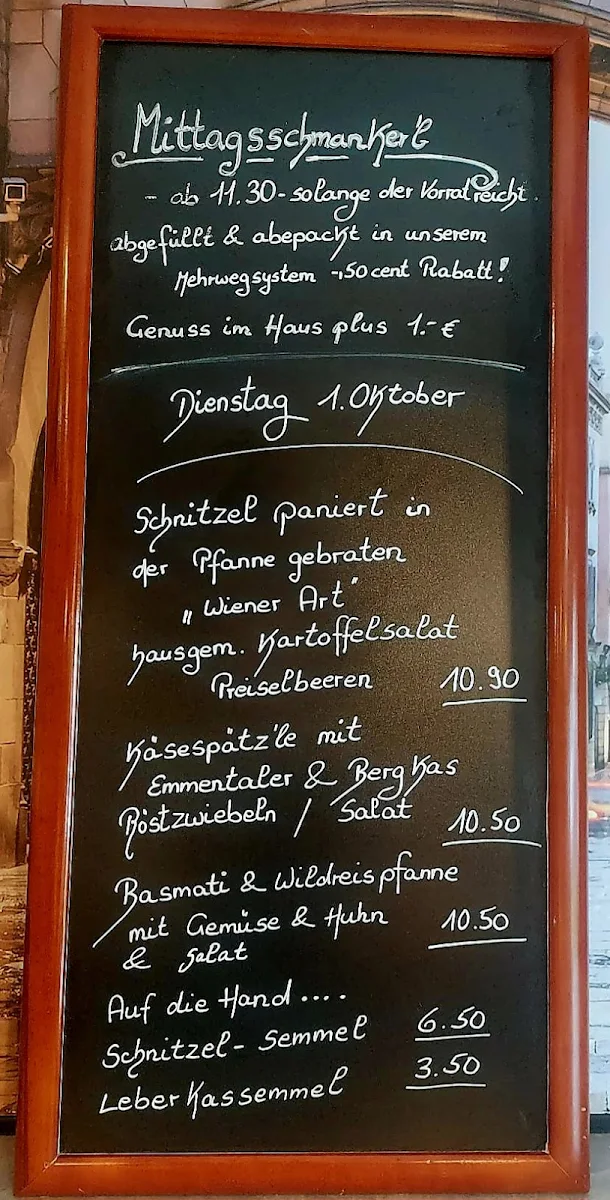 Mittagsschmankerl
- ab 11.30 - solange der Vorrat reicht.
abgefüllt & abepackt in unserem
Mehrwegsystem -,50 cent Rabatt!
Genuss im Haus plus 1.- €
Dienstag 1. Oktober
Schnitzel paniert in
der Pfanne gebraten
„Wiener Art"
hausgem. Kartoffelsalat
Preiselbeeren 10.90
Käsespätz'le mit
Emmentaler & Bergkas
Röstzwiebeln / Salat 10.50
Basmati & Wildreispfanne
mit Gemüse & Huhn 10.50
& Salat
Auf die Hand ....
Schnitzel-Semmel 6.50
Leberkassemmel 3.50